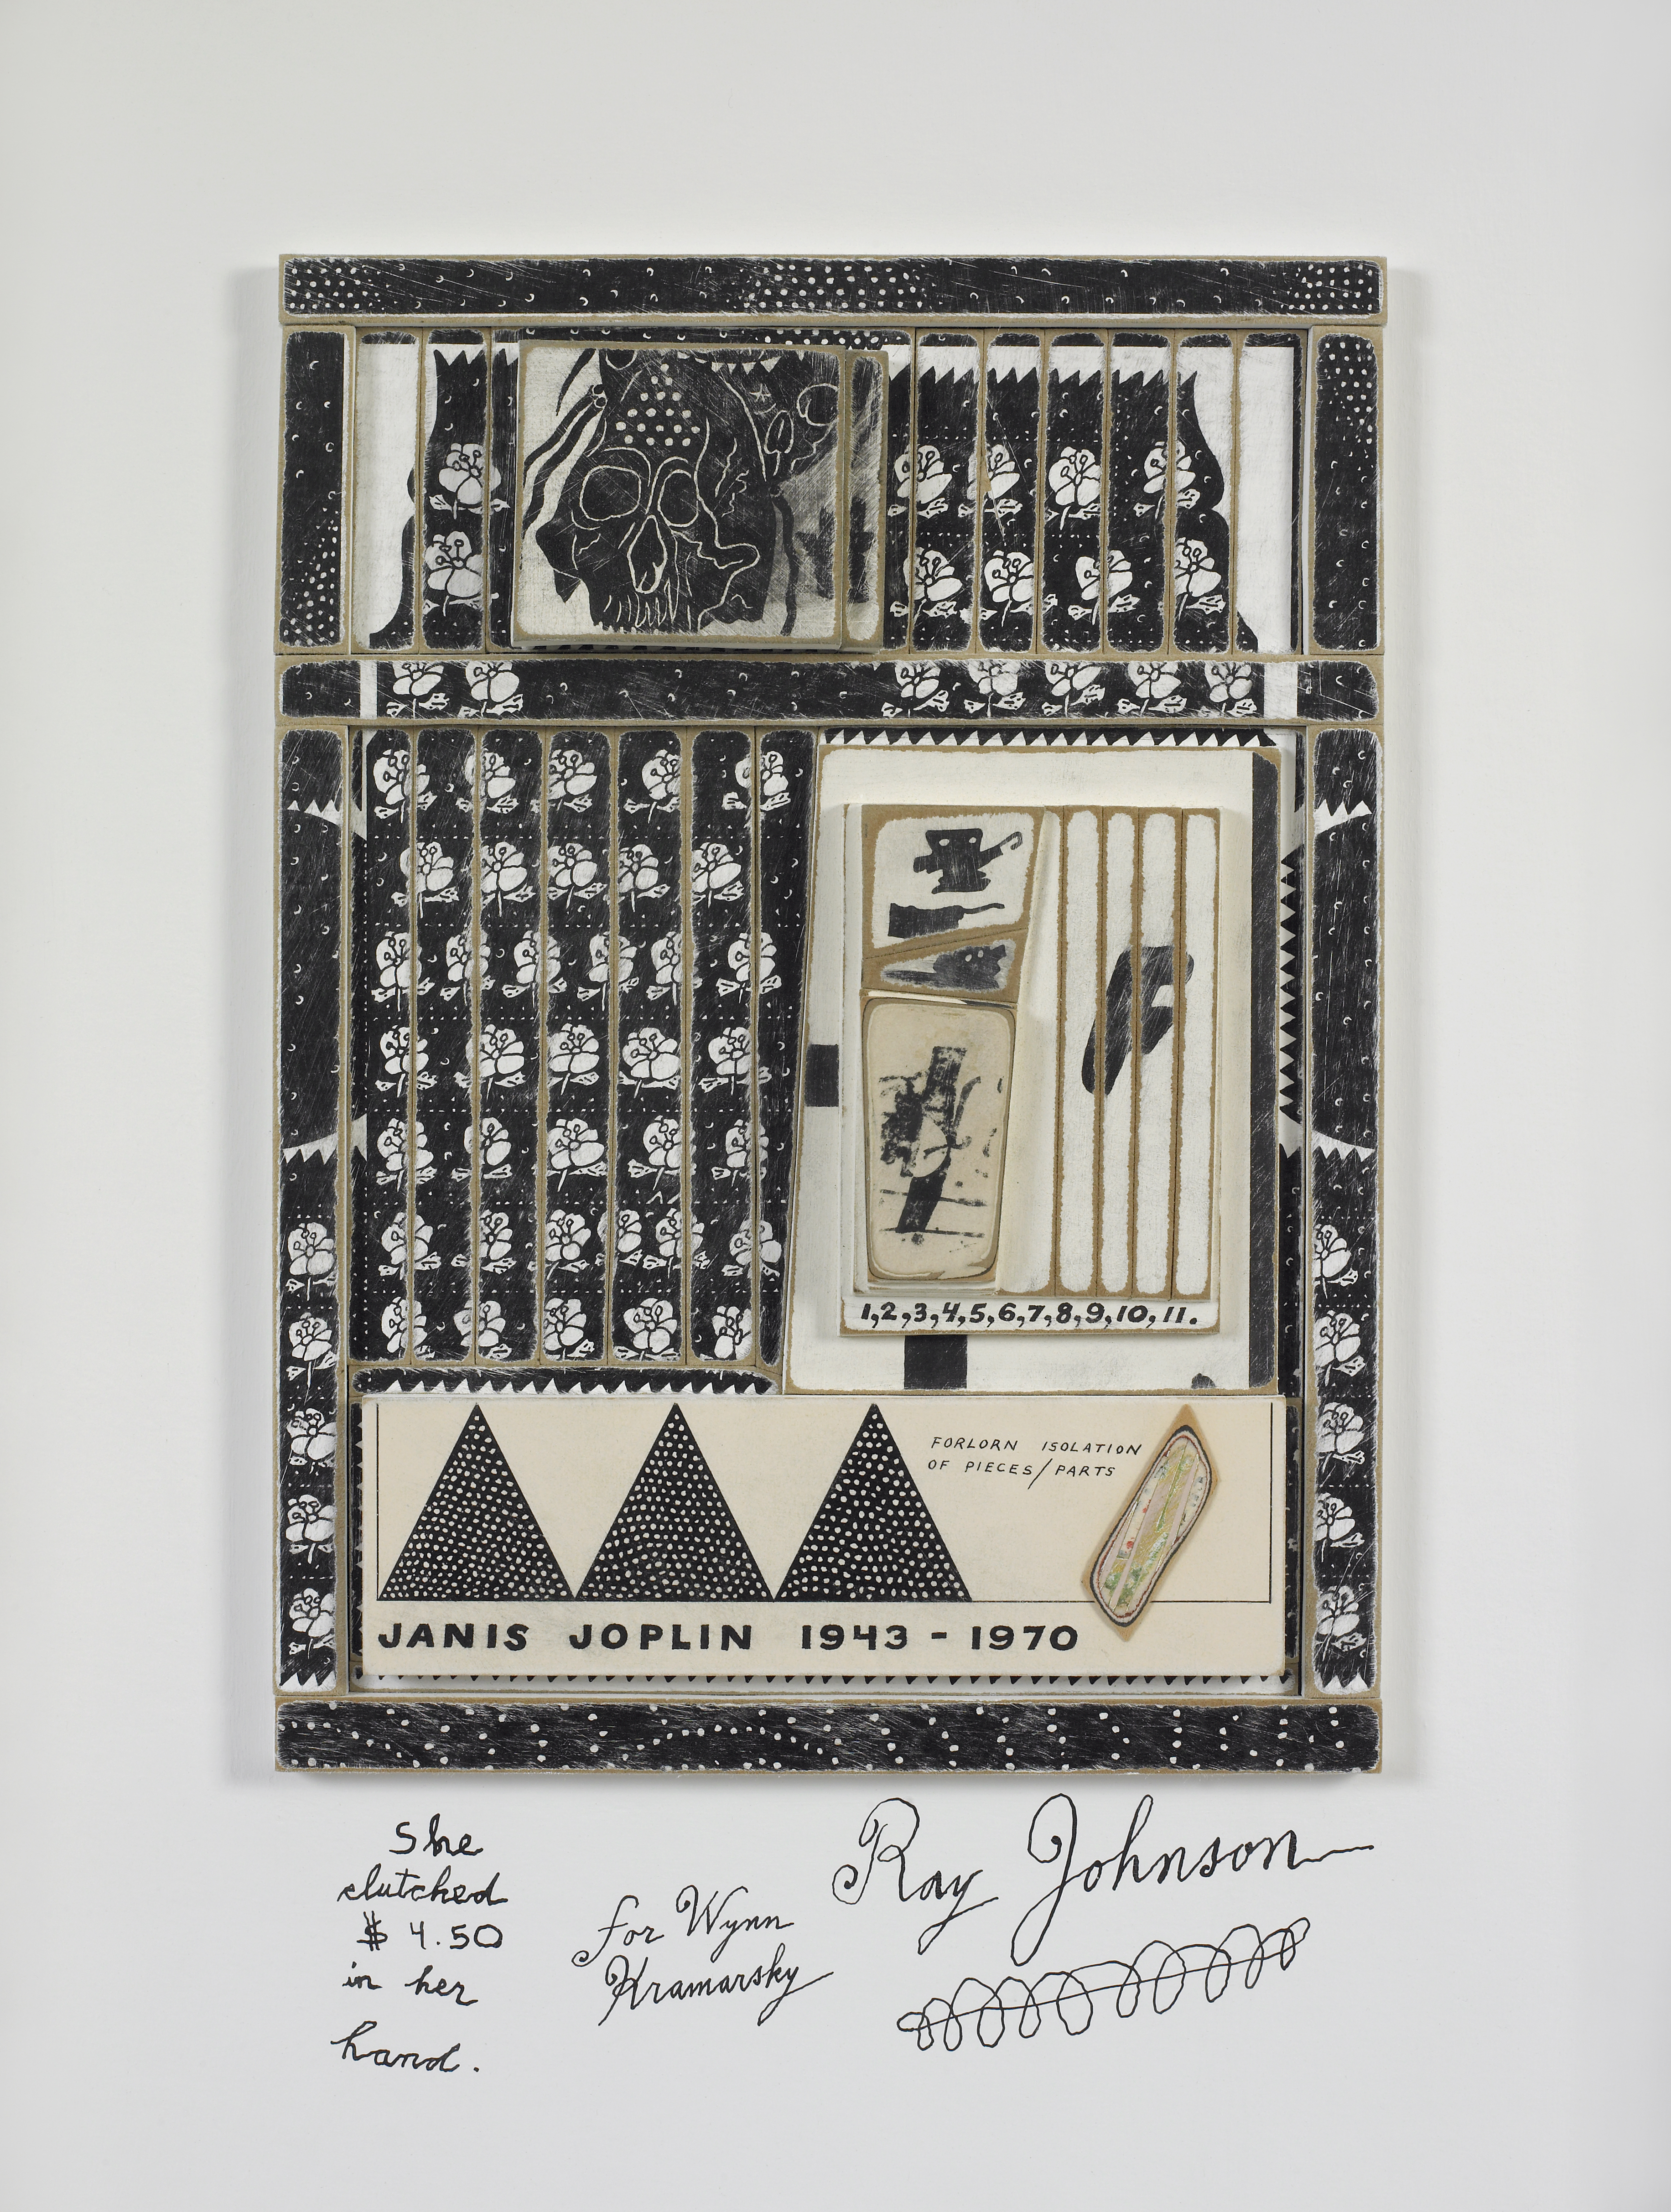 1,2,3,4,5,6,7,8,9,10,11.
FORLORN ISOLATION
OF PIECES/PARTS
JANIS JOPLIN 1943-1970
She
clutched
$ 4.50
in her
hand.
for Wynn
Kramarsky
Ray Johnson